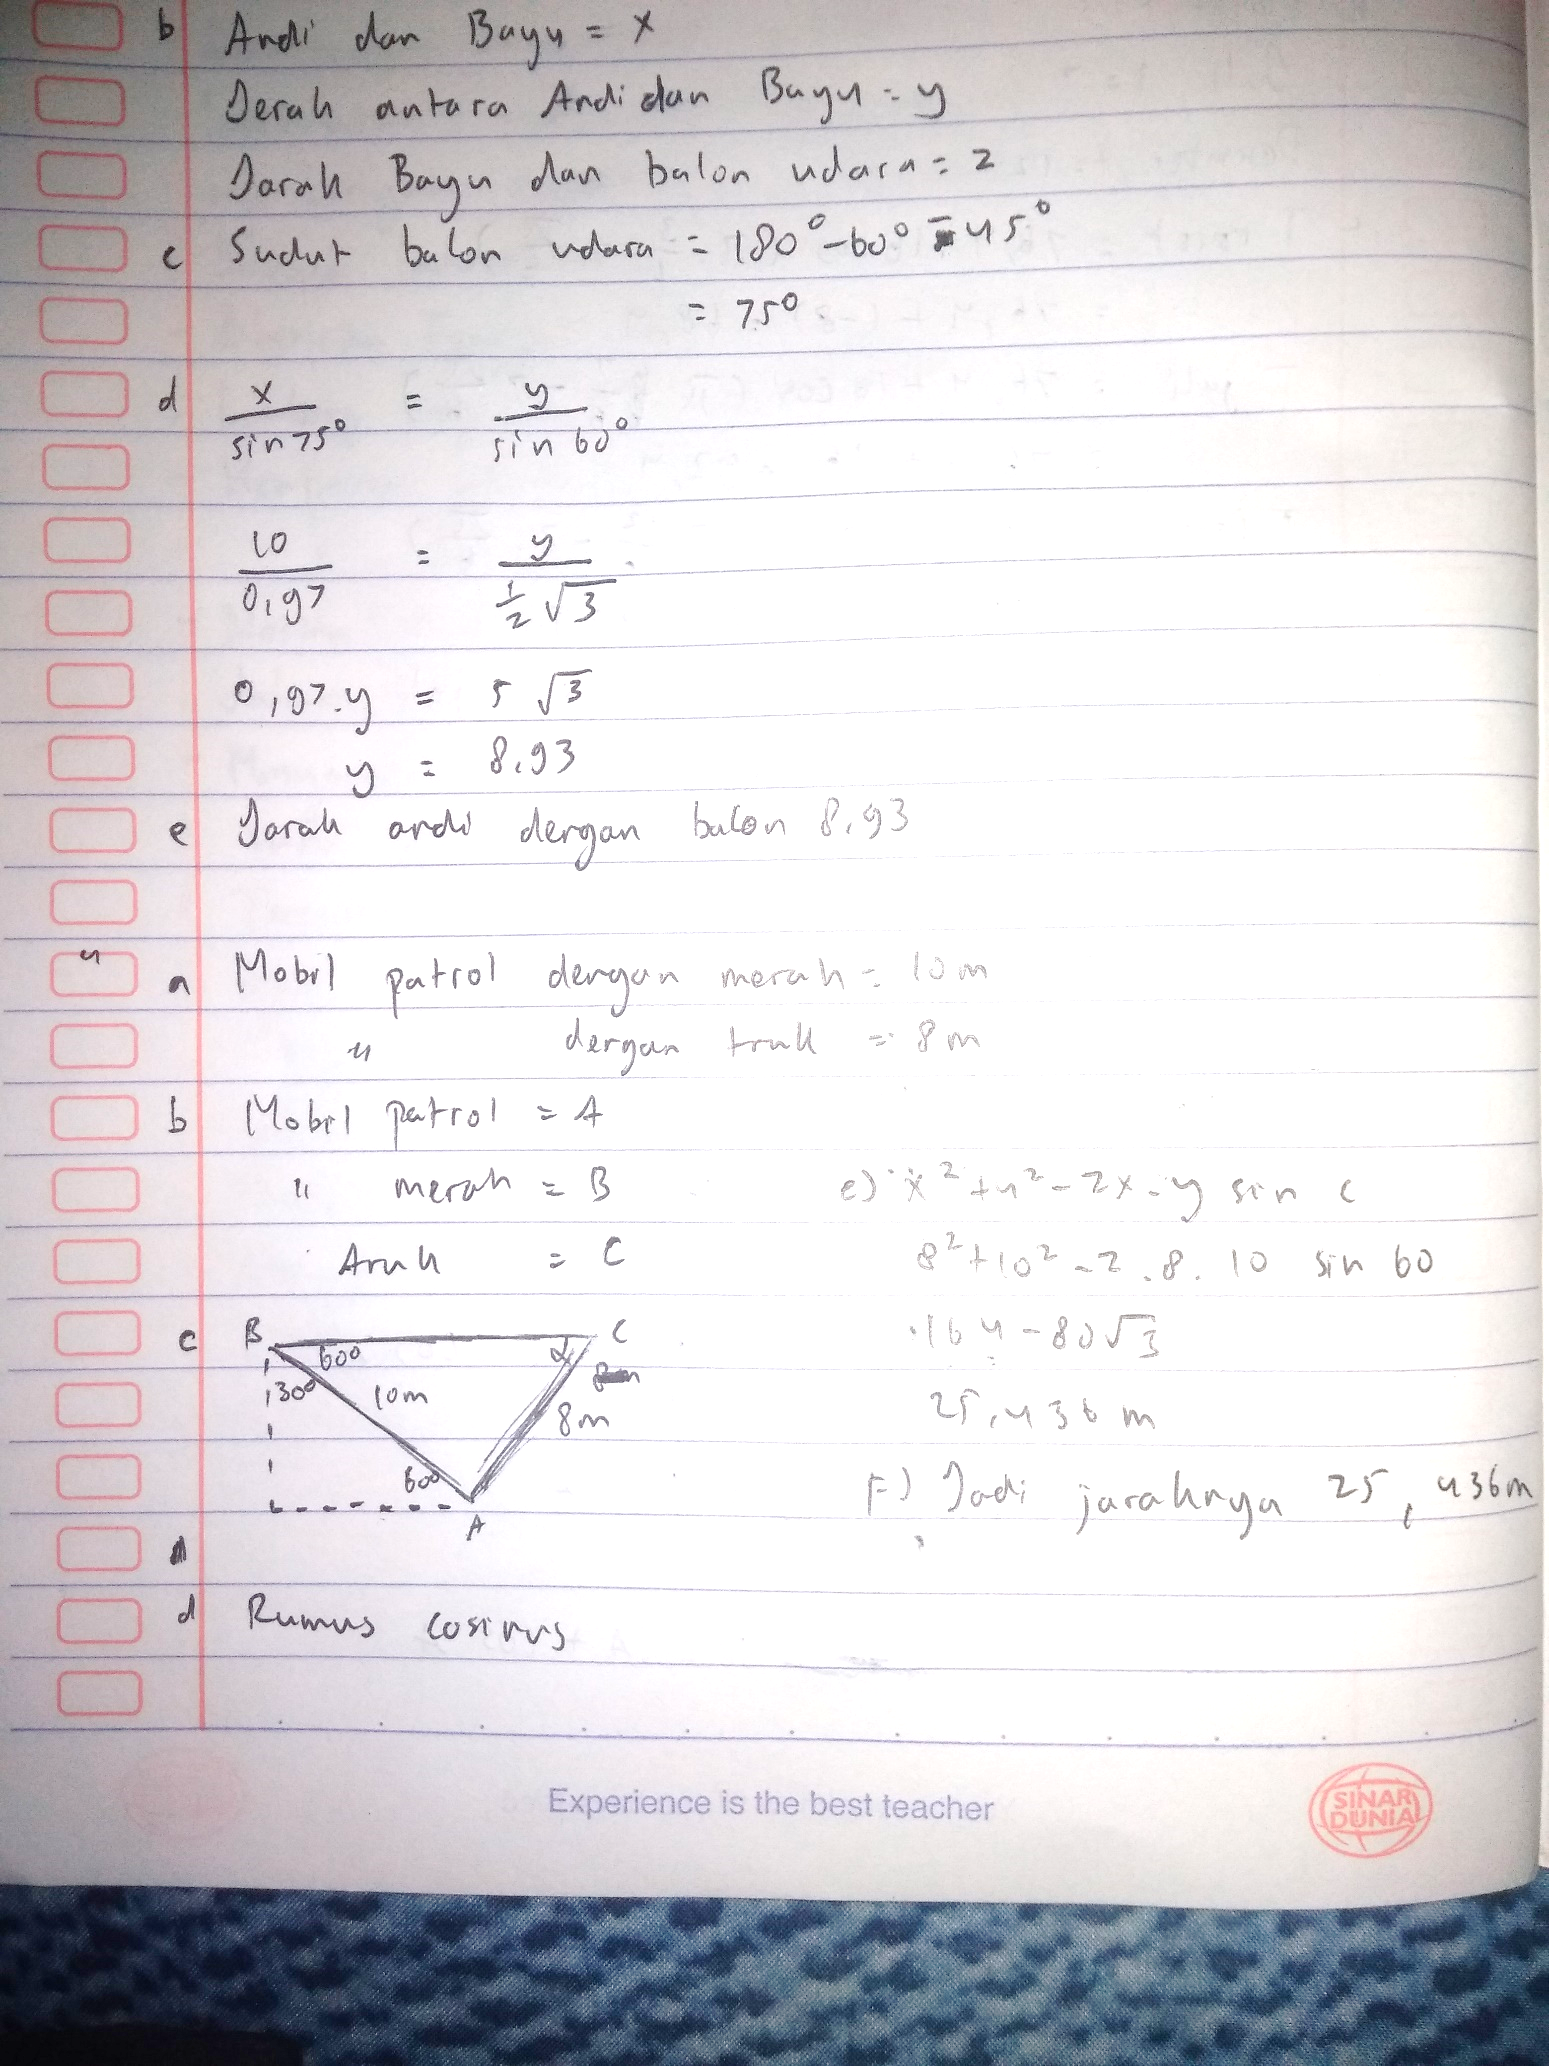 b Andi dan Bayu = x
Jerak antara Andi dan Bayu = y
Jarak Bayu dan balon udara = z
c Sudut balon udara = 180° - 60° - 45°
= 75°
d x/sin 75° = y/sin 60°
10/0,97 = y/½√3
0,97.y = 5√3
y = 8,93
e Jarak andi dengan balon 8,93
4 a Mobil patrol dengan merah = 10 m
" dengan truk = 8 m
b Mobil patrol = A
" merah = B
Aruk = C
c B 60° C α
130° 10 m 8 m
60°
A
d Rumus cosinus
e) x² + y² - 2x.y sin c
8² + 10² - 2.8.10 sin 60
164 - 80√3
25,436 m
F) Jadi jaraknya 25,436m
Experience is the best teacher
SINAR
DUNIA